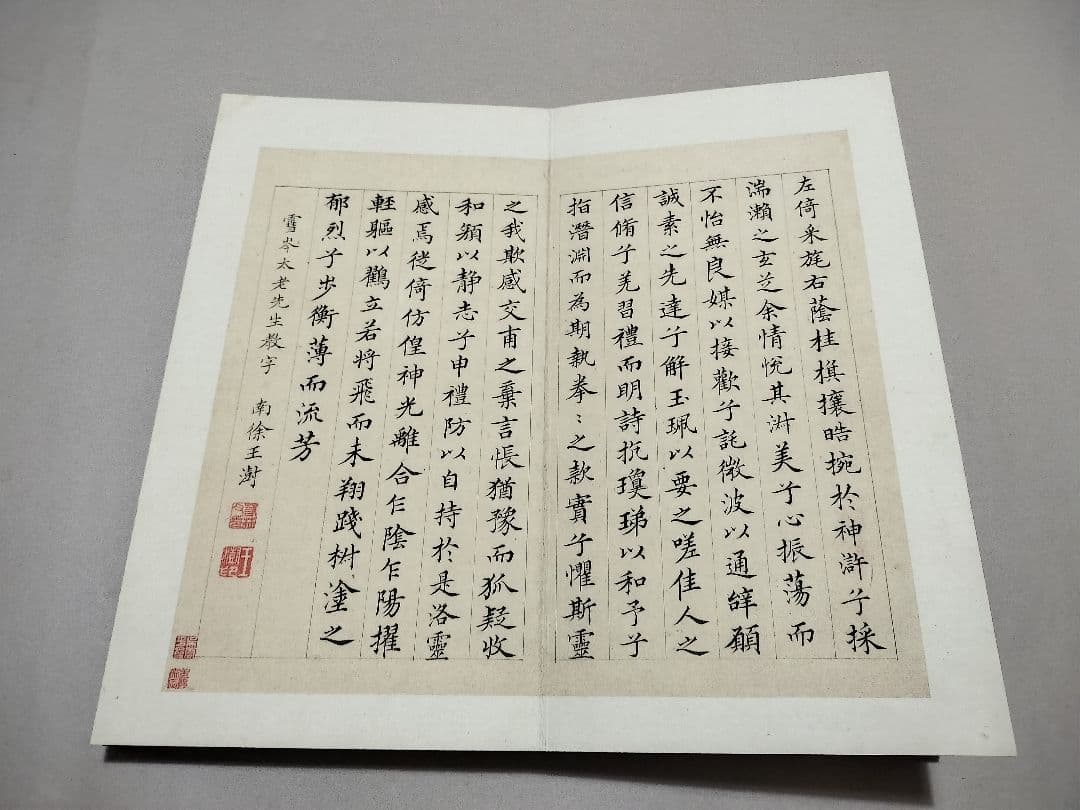 左倚采旄右蔭桂旗攘皓捥於神滸兮採
湍瀨之玄芝余情悅其淑美兮心振蕩而
不怡無良媒以接歡兮託微波以通辭願
誠素之先達兮解玉珮以要之嗟佳人之
信脩兮羌習禮而明詩抗瓊珶以和予兮
指潛淵而為期執拳〻之款實兮懼斯靈
之我欺感交甫之棄言悵猶豫而狐疑收
和顏以静志兮申禮防以自持於是洛靈
感焉徙倚仿偟神光離合乍陰乍陽擢
輕軀以鶴立若將飛而未翔踐椒塗之
郁烈兮步衡薄而流芳
雪岑太老先生教字
南徐王澍